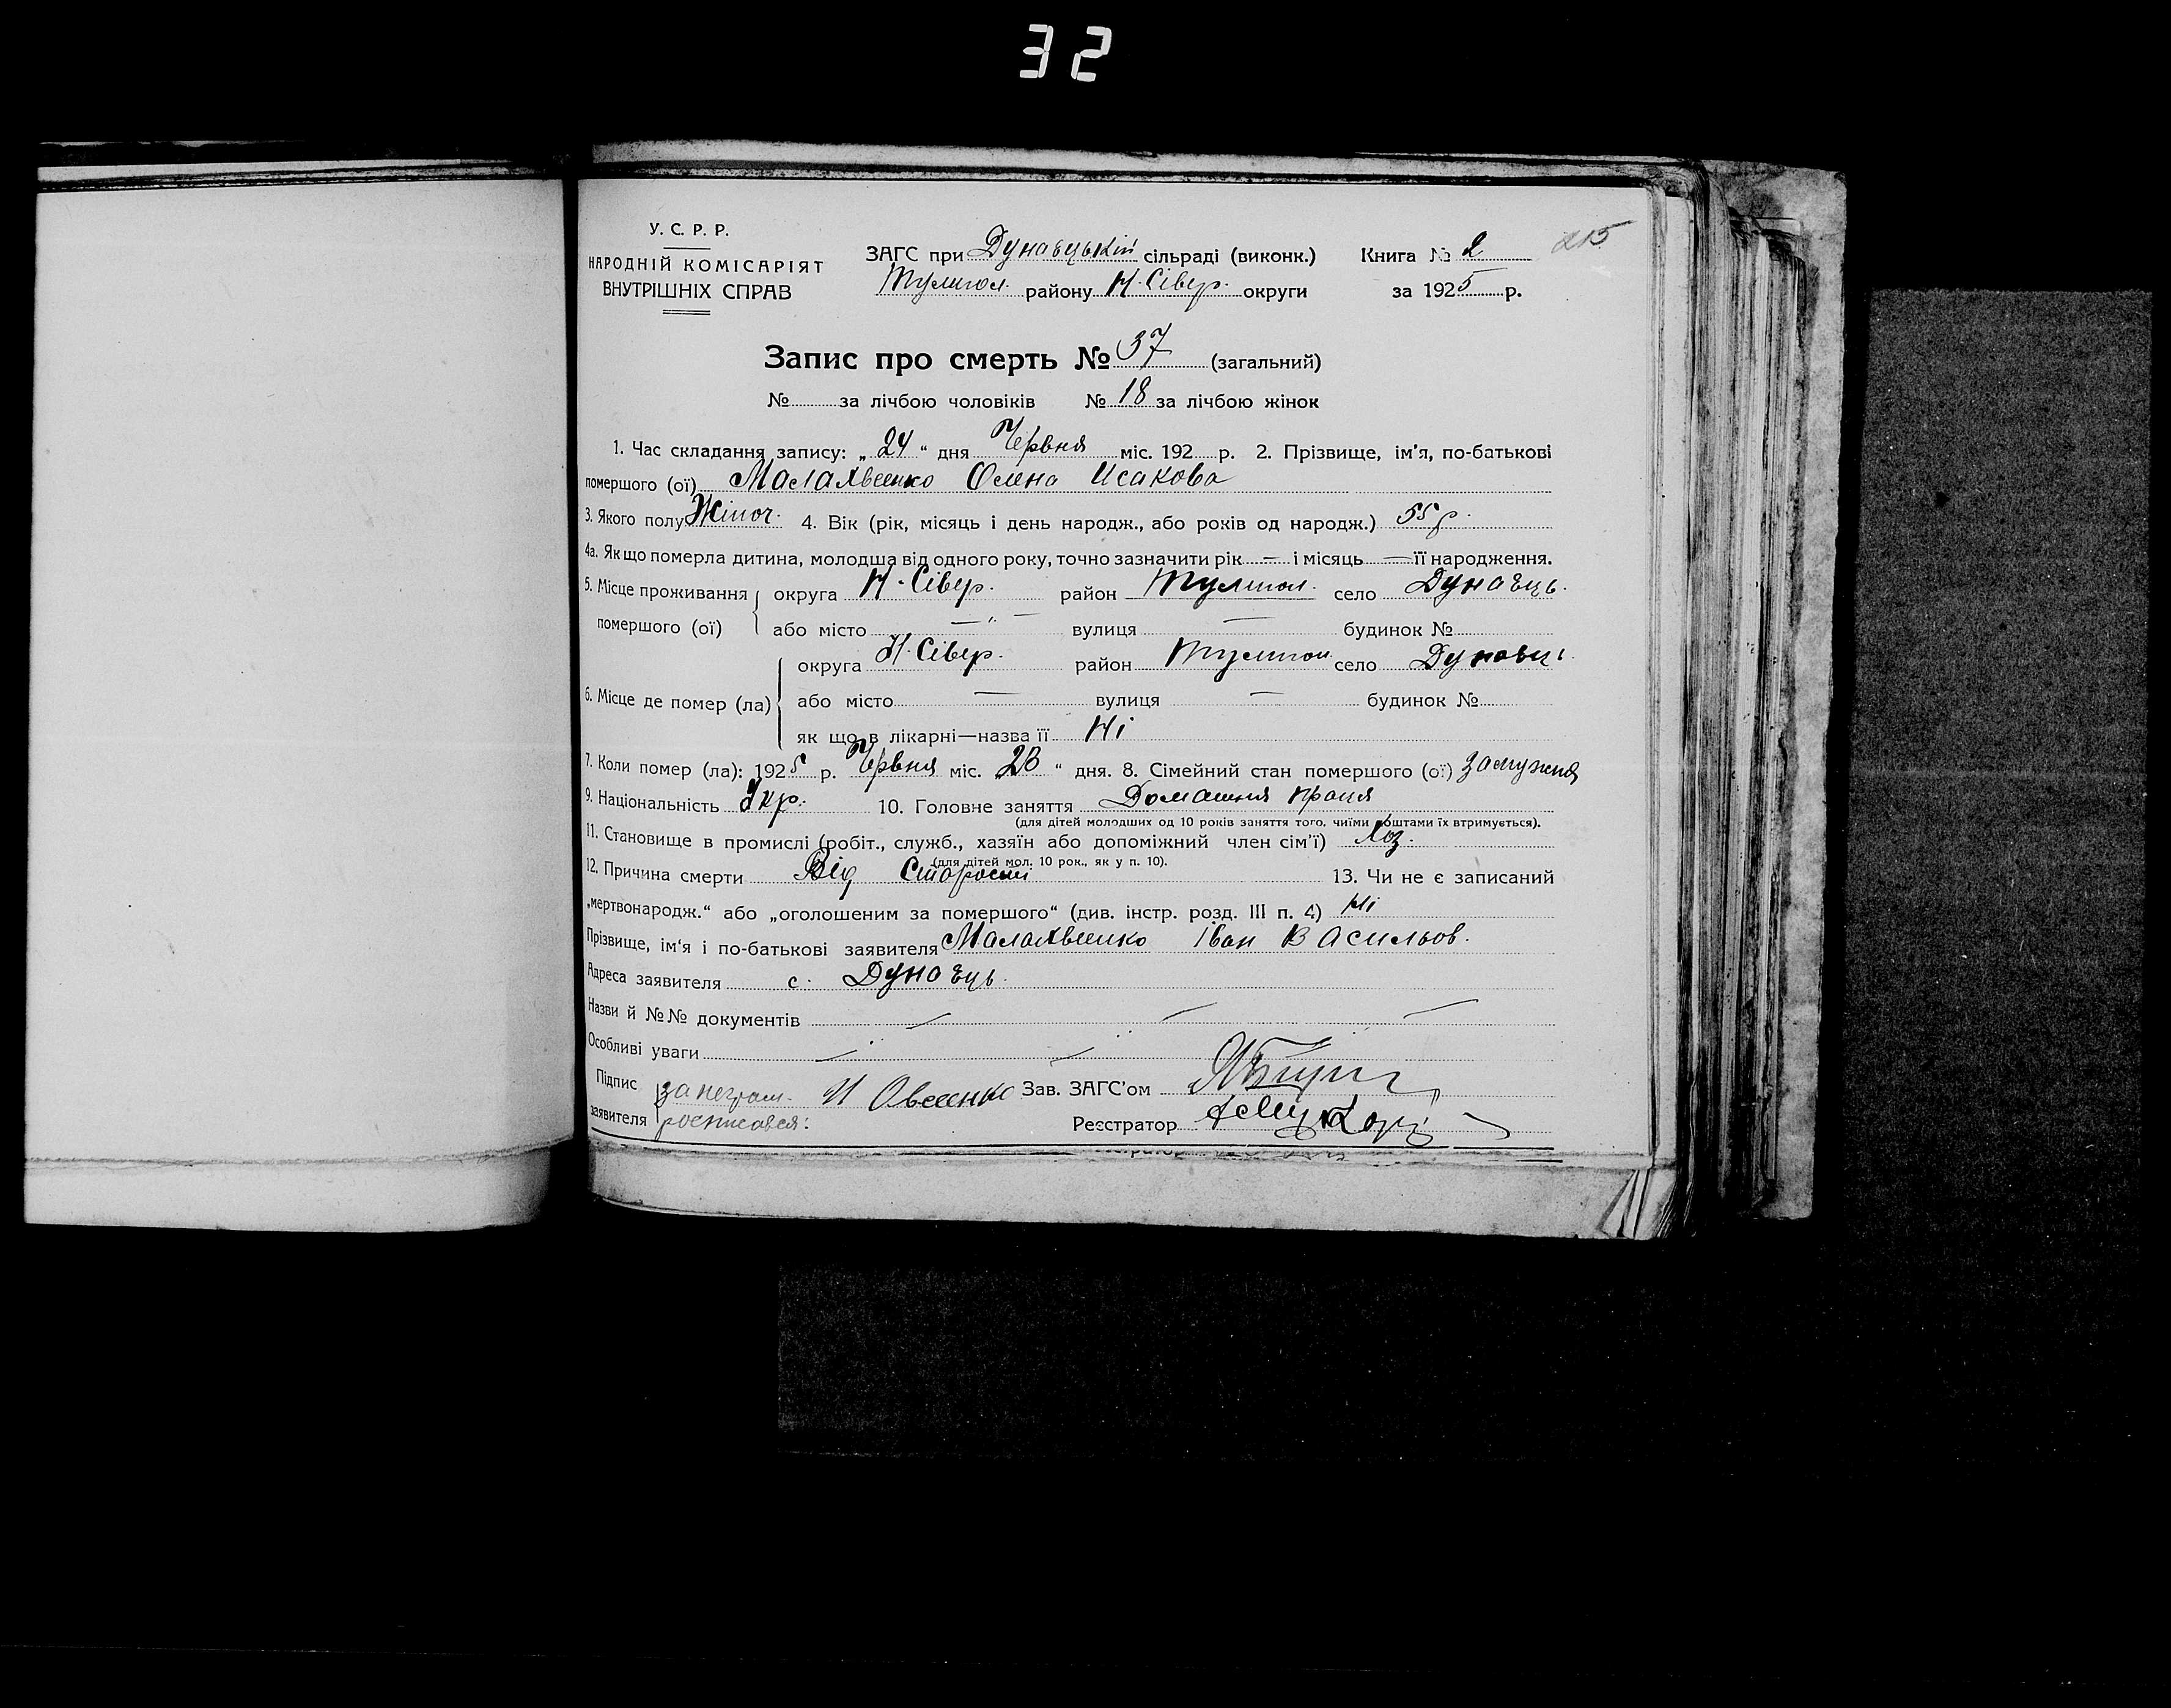 32
У. С. Р. Р.
НАРОДНІЙ КОМІСАРІЯТ
ВНУТРІШНІХ СПРАВ
ЗАГС при Дунаєцькій сільраді (виконк.) Книга № 2 215
Тулигол. району Н-Сівер. округи за 1925 р.
Запис про смерть № 37 (загальний)
№ за лічбою чоловіків № 18 за лічбою жінок
1. Час складання запису: „ 24 “ дня Червня міс. 192 р. 2. Прізвище, ім'я, по-батькові
помершого (ої) Малахвеенко Олена Исакова
3. Якого полу Жіноч. 4. Вік (рік, місяць і день народж., або років од народж.) 55 р.
4а. Як що померла дитина, молодша від одного року, точно зазначити рік — і місяць — її народження.
5. Місце проживання округа Н-Сівер. район Тулигол. село Дунаєць.
помершого (ої) або місто —"— вулиця — будинок №
округа Н. Сівер. район Тулигол село Дунаєць
6. Місце де помер (ла) або місто — вулиця — будинок №
як що в лікарні—назва її Ні
7. Коли помер (ла): 1925 р. Червня міс. 23 “ дня. 8. Сімейний стан помершого (ої) замужня
9. Національність Укр. 10. Головне заняття Домашня праця
(для дітей молодших од 10 років заняття того, чиїми коштами їх втримується).
11. Становище в промислі (робіт., служб., хазяїн або допоміжний член сім'ї) Хоз.
(для дітей мол. 10 рок., як у п. 10).
12. Причина смерти Від Старости 13. Чи не є записаний
„мертвонародж.“ або „оголошеним за помершого“ (див. інстр. розд. III п. 4) Ні
Прізвище, ім'я і по-батькові заявителя Малахвеенко Іван Васильов.
Адреса заявителя с. Дунаєць.
Назви й №№ документів — — —
Особливі уваги — —
Підпис за неграм. И Овсеенко Зав. ЗАГС'ом
заявителя росписався: Реєстратор